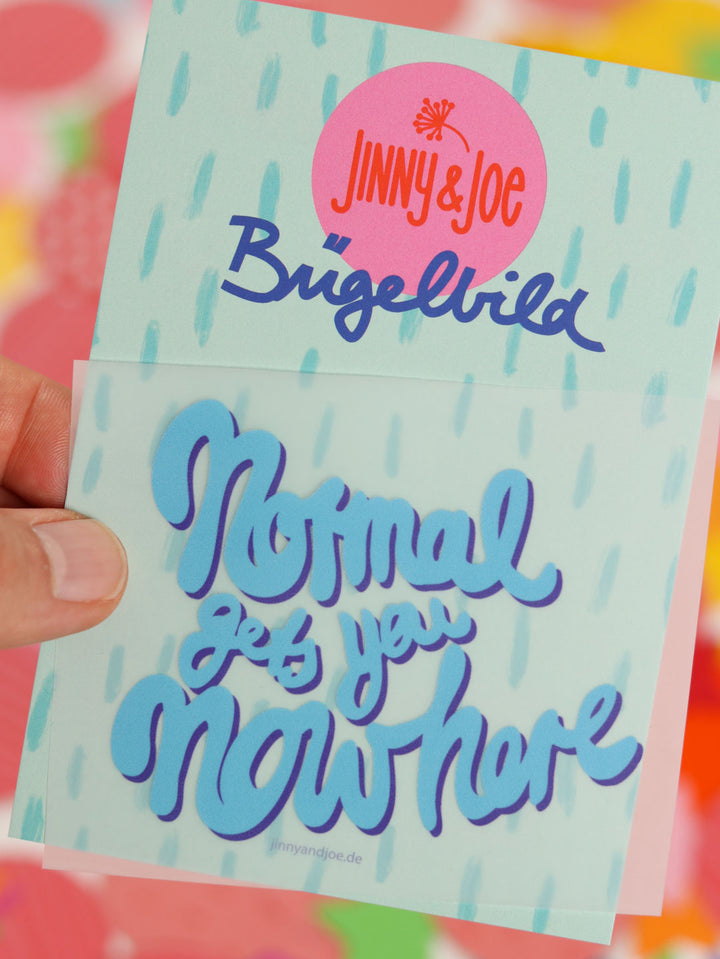 JINNY & JOE
Bügelbild
Normal
gets you
Nowhere
jinnyandjoe.de